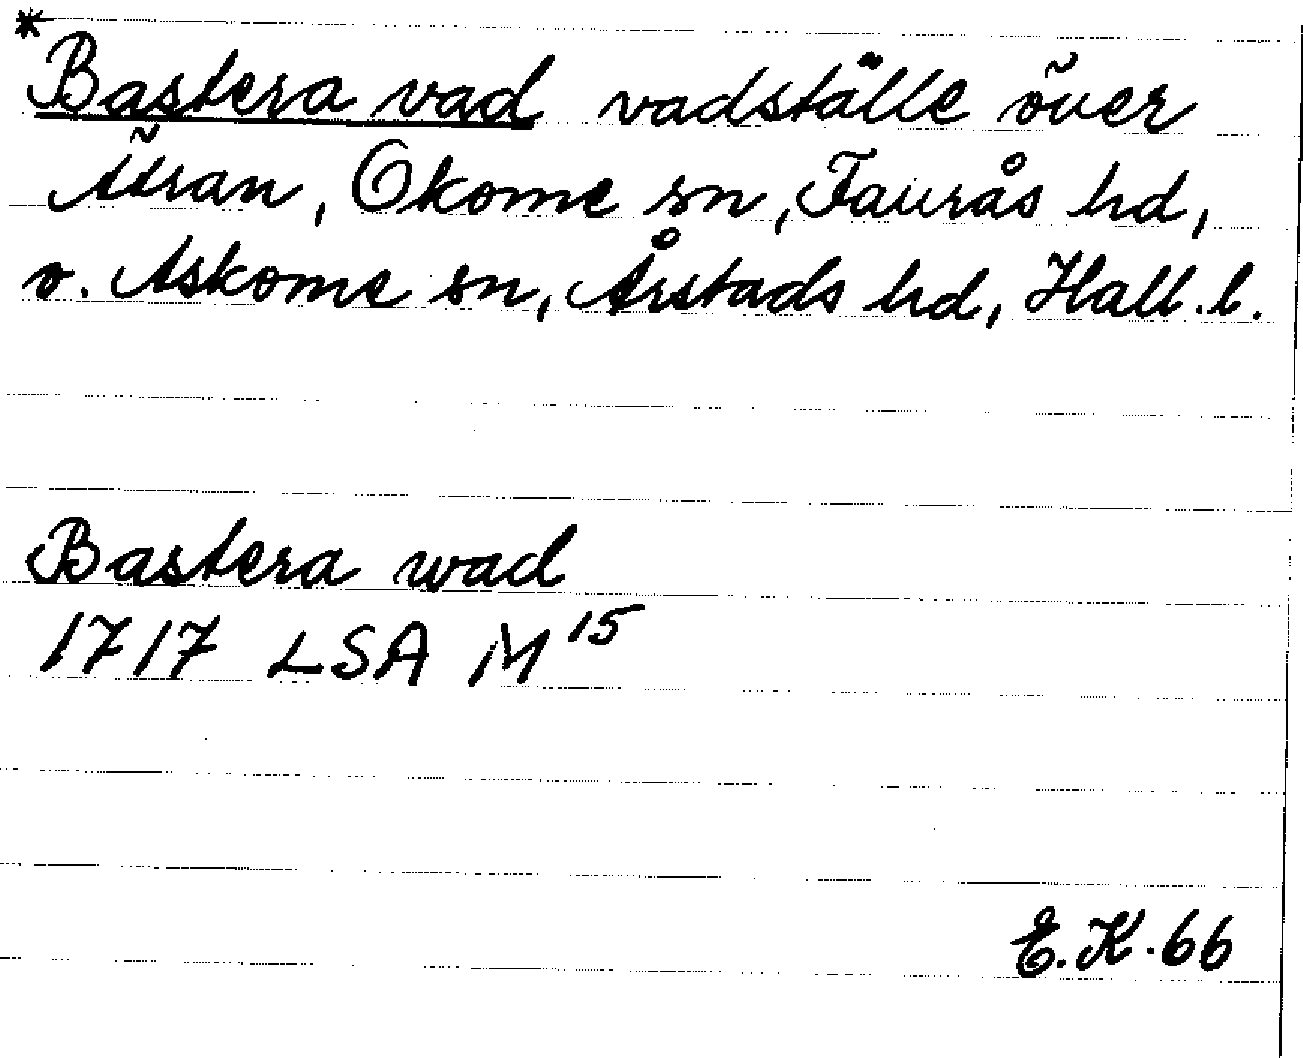 *
Bastera vad vadställe över
Ätran, Okome sn, Faurås hd,
o. Askome sn, Årstads hd, Hall. l.
Bastera wad
1717 LSA M 15
E.K. 66